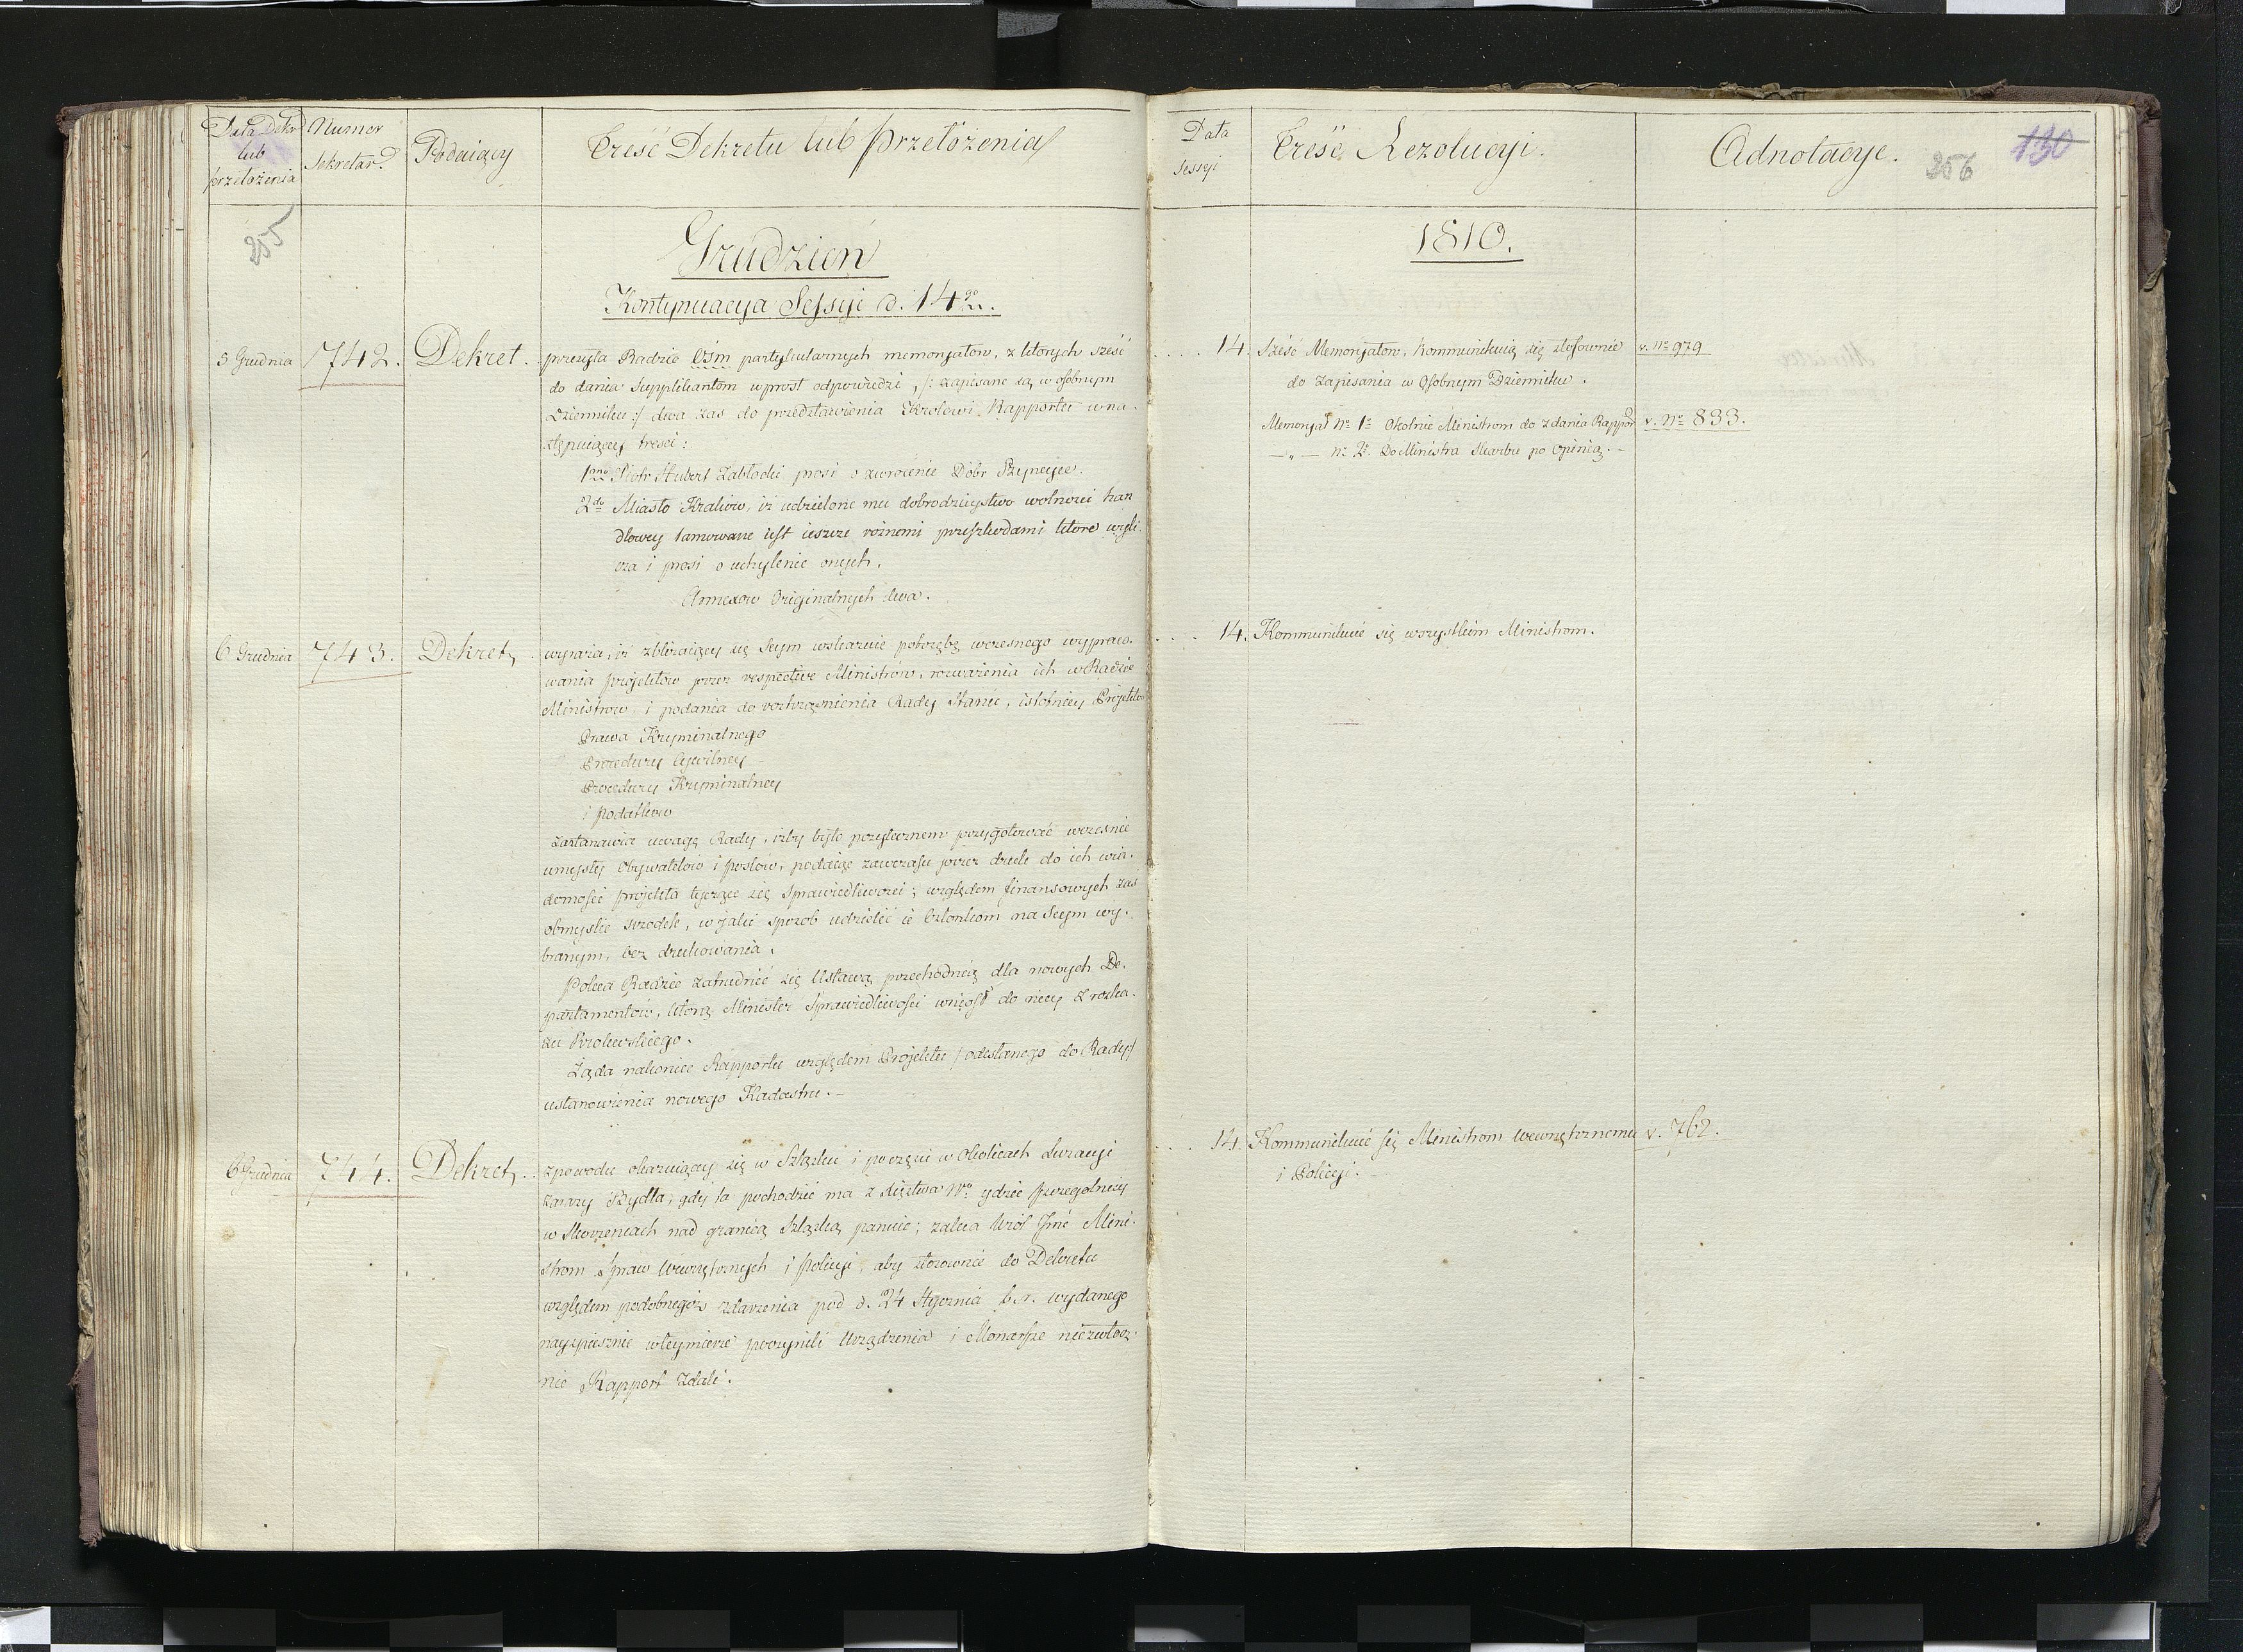 Data Dekr.
lub
przełożenia
Numer
Sekretar.
Podaiący
Treść Dekretu lub przełożenia
Data
Sessyi
Treść Rezolucyi.
Adnotacye.
256
130
255
Grudzień
1810.
Kontynuacya Sessyi d. 14go
5 Grudnia 742. Dekret. przesyła Radzie Ośm partykularnych memoryałow, z ktorych sześć
do dania Supplikantom wprost odpowiedzi, /: zapisane są w osobnym
Dzienniku :/ dwa zas do przedstawienia Krolowi Rapportu w na-
stępuiącey tresci:
1mo Piotr Hubert Zabłocki prosi o zwrocenie Dobr
2do Miasto Krakow, iż udzielone mu dobrodzieystwo wolności han
dlowey tamowane iest ieszcze rożnemi przeszkodami ktore wyli-
cza i prosi o uchylenie onych.
Annexow Originalnych dwa.
14. Sześć Memoryałow, kommunikuią się stosownie
do zapisania w Osobnym Dzienniku.
v. No 979
Memoryał No 1o Okolnie Ministrom do zdania Rappor
v. No 833.
— „ — No 2o Do Ministra Skarbu po Opinią. —
6 Grudnia 743. Dekret, wyraża, iż zbliżaiący się Seym wskazuie potrzebę wczesnego wypraco-
wania projektów przez respective Ministrów, rozważenia ich w Radzie
Ministrow, i podania do roztrząśnienia Rady Stanu, istotniey Projektow
Prawa Kryminalnego
Procedury Cywilney
Procedury Kryminalney
i Podatkow
Zastanawia uwagę Rady, iżby było pożytecznem przygotować wcześnie
umysły Obywatelow i posłow, podaiąc zawczasu przez druk do ich wia-
domości projekta tyczące się Sprawiedliwości; względem finansowych zas
obmyslić srzodek, w jaki sposob udzielić ie Członkom na Seym wy-
branym, bez drukowania.
Poleca Radzie zatrudnić się Ustawą przechodnią dla nowych De-
partamentów, ktorą Minister Sprawiedliwości wniosł do niey z rozka-
zu Krolewskiego.
Żąda nakoniec Rapportu względem Projektu /odesłanego do Rady/
ustanowienia nowego Kadastru. —
14. Kommunikuie się wszystkim Ministrom.
6 Grudnia 744. Dekret, z powodu okazuiącey się w Szląsku i po części w Okolicach
zarazy Bydła, gdy ta pochodzić ma z Xięstwa Wo gdzie szczegolniey
w nad granicą Szląską panuie; zaleca Krol Jmć Mini-
strom Spraw Wewnętrznych i Policyi, aby stosownie do Dekretu
względem podobnegoż zdarzenia pod d. 24 Stycznia b. r. wydanego
nayspieszniey w teymierze poczynili Urządzenia i Monarsze niezwłocz-
nie Rapport zdali.
14. Kommunikuie się Ministrom Wewnętrznemu
i Policyi.
v. 762.